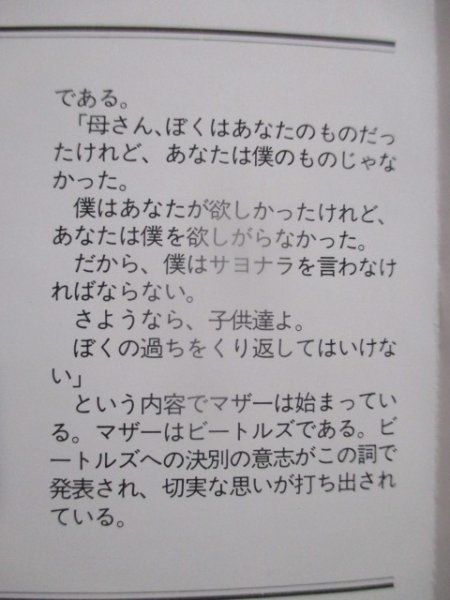 である。
「母さん、ぼくはあなたのものだっ
たけれど、あなたは僕のものじゃな
かった。
僕はあなたが欲しかったけれど、
あなたは僕を欲しがらなかった。
だから、僕はサヨナラを言わなけ
ればならない。
さようなら、子供達よ。
ぼくの過ちをくり返してはいけな
い」
という内容でマザーは始まってい
る。マザーはビートルズである。ビ
ートルズへの決別の意志がこの詞で
発表され、切実な思いが打ち出され
ている。